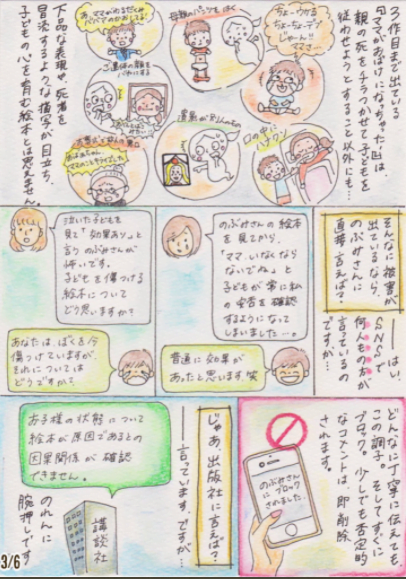 3作目まで出ている
「ママがおばけになっちゃった」は
親の死をチラつかせて子どもを
従わせようとすること以外にも…
ちょーウケる
じゃーん!!
ママ
口の中に
遺影が
下品な表現や、死者を
冒涜するような描写が目立ち、
子どもの心を育む絵本とは思えません。
そんなに被害が
出ているなら、
のぶみさんに
直接言えば?
――はい。
SNSで
何人もの方が
言っているの
ですが…
のぶみさんの絵本
を見てから、
「ママ、いなくなら
ないでね」と
子どもが常に私
の安否を確認
するようになって
しまいました…。
普通に効果が
あったと思います 笑
泣いた子どもを
見て「効果あり」と
言うのぶみさんが
怖いです。
子どもを傷つける
絵本について
どう思いますか?
あなたは、ぼくを今
傷つけていますが、
それについては
どうですか?
どんなに丁寧に伝えても、
この調子。そしてすぐに
ブロック。少しでも否定的
なコメントは、即削除
されます。
のぶみさん
にブロック
されました
じゃあ出版社に言えば?
――言っています、ですが…
お子様の状態について
絵本が原因であるとの
因果関係が確認
できません。
講談社
のれんに
腕押しです
3/6